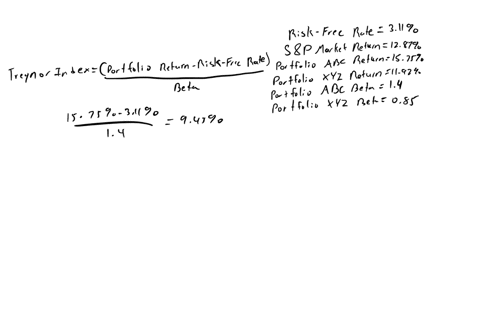 Risk-Free Rate = 3.11%
S&P Market Return = 12.87%
Portfolio ABC Return = 15.75%
Portfolio XYZ Return = 11.92%
Portfolio ABC Beta = 1.4
Portfolio XYZ Beta = 0.85
Treynor Index = (Portfolio Return - Risk-Free Rate)
Beta
15.75% - 3.11%
1.4
= 9.47%